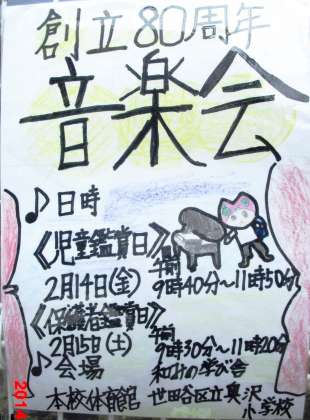 創立80周年
音楽会
♪日時
《児童鑑賞日》
午前
2月14日(金) 9時40分～11時50分
《保護者鑑賞日》
午前
2月15日(土) 9時30分～11時20分
♪会場 和みの学び舎
本校体育館 世田谷区立奥沢
小学校
2014